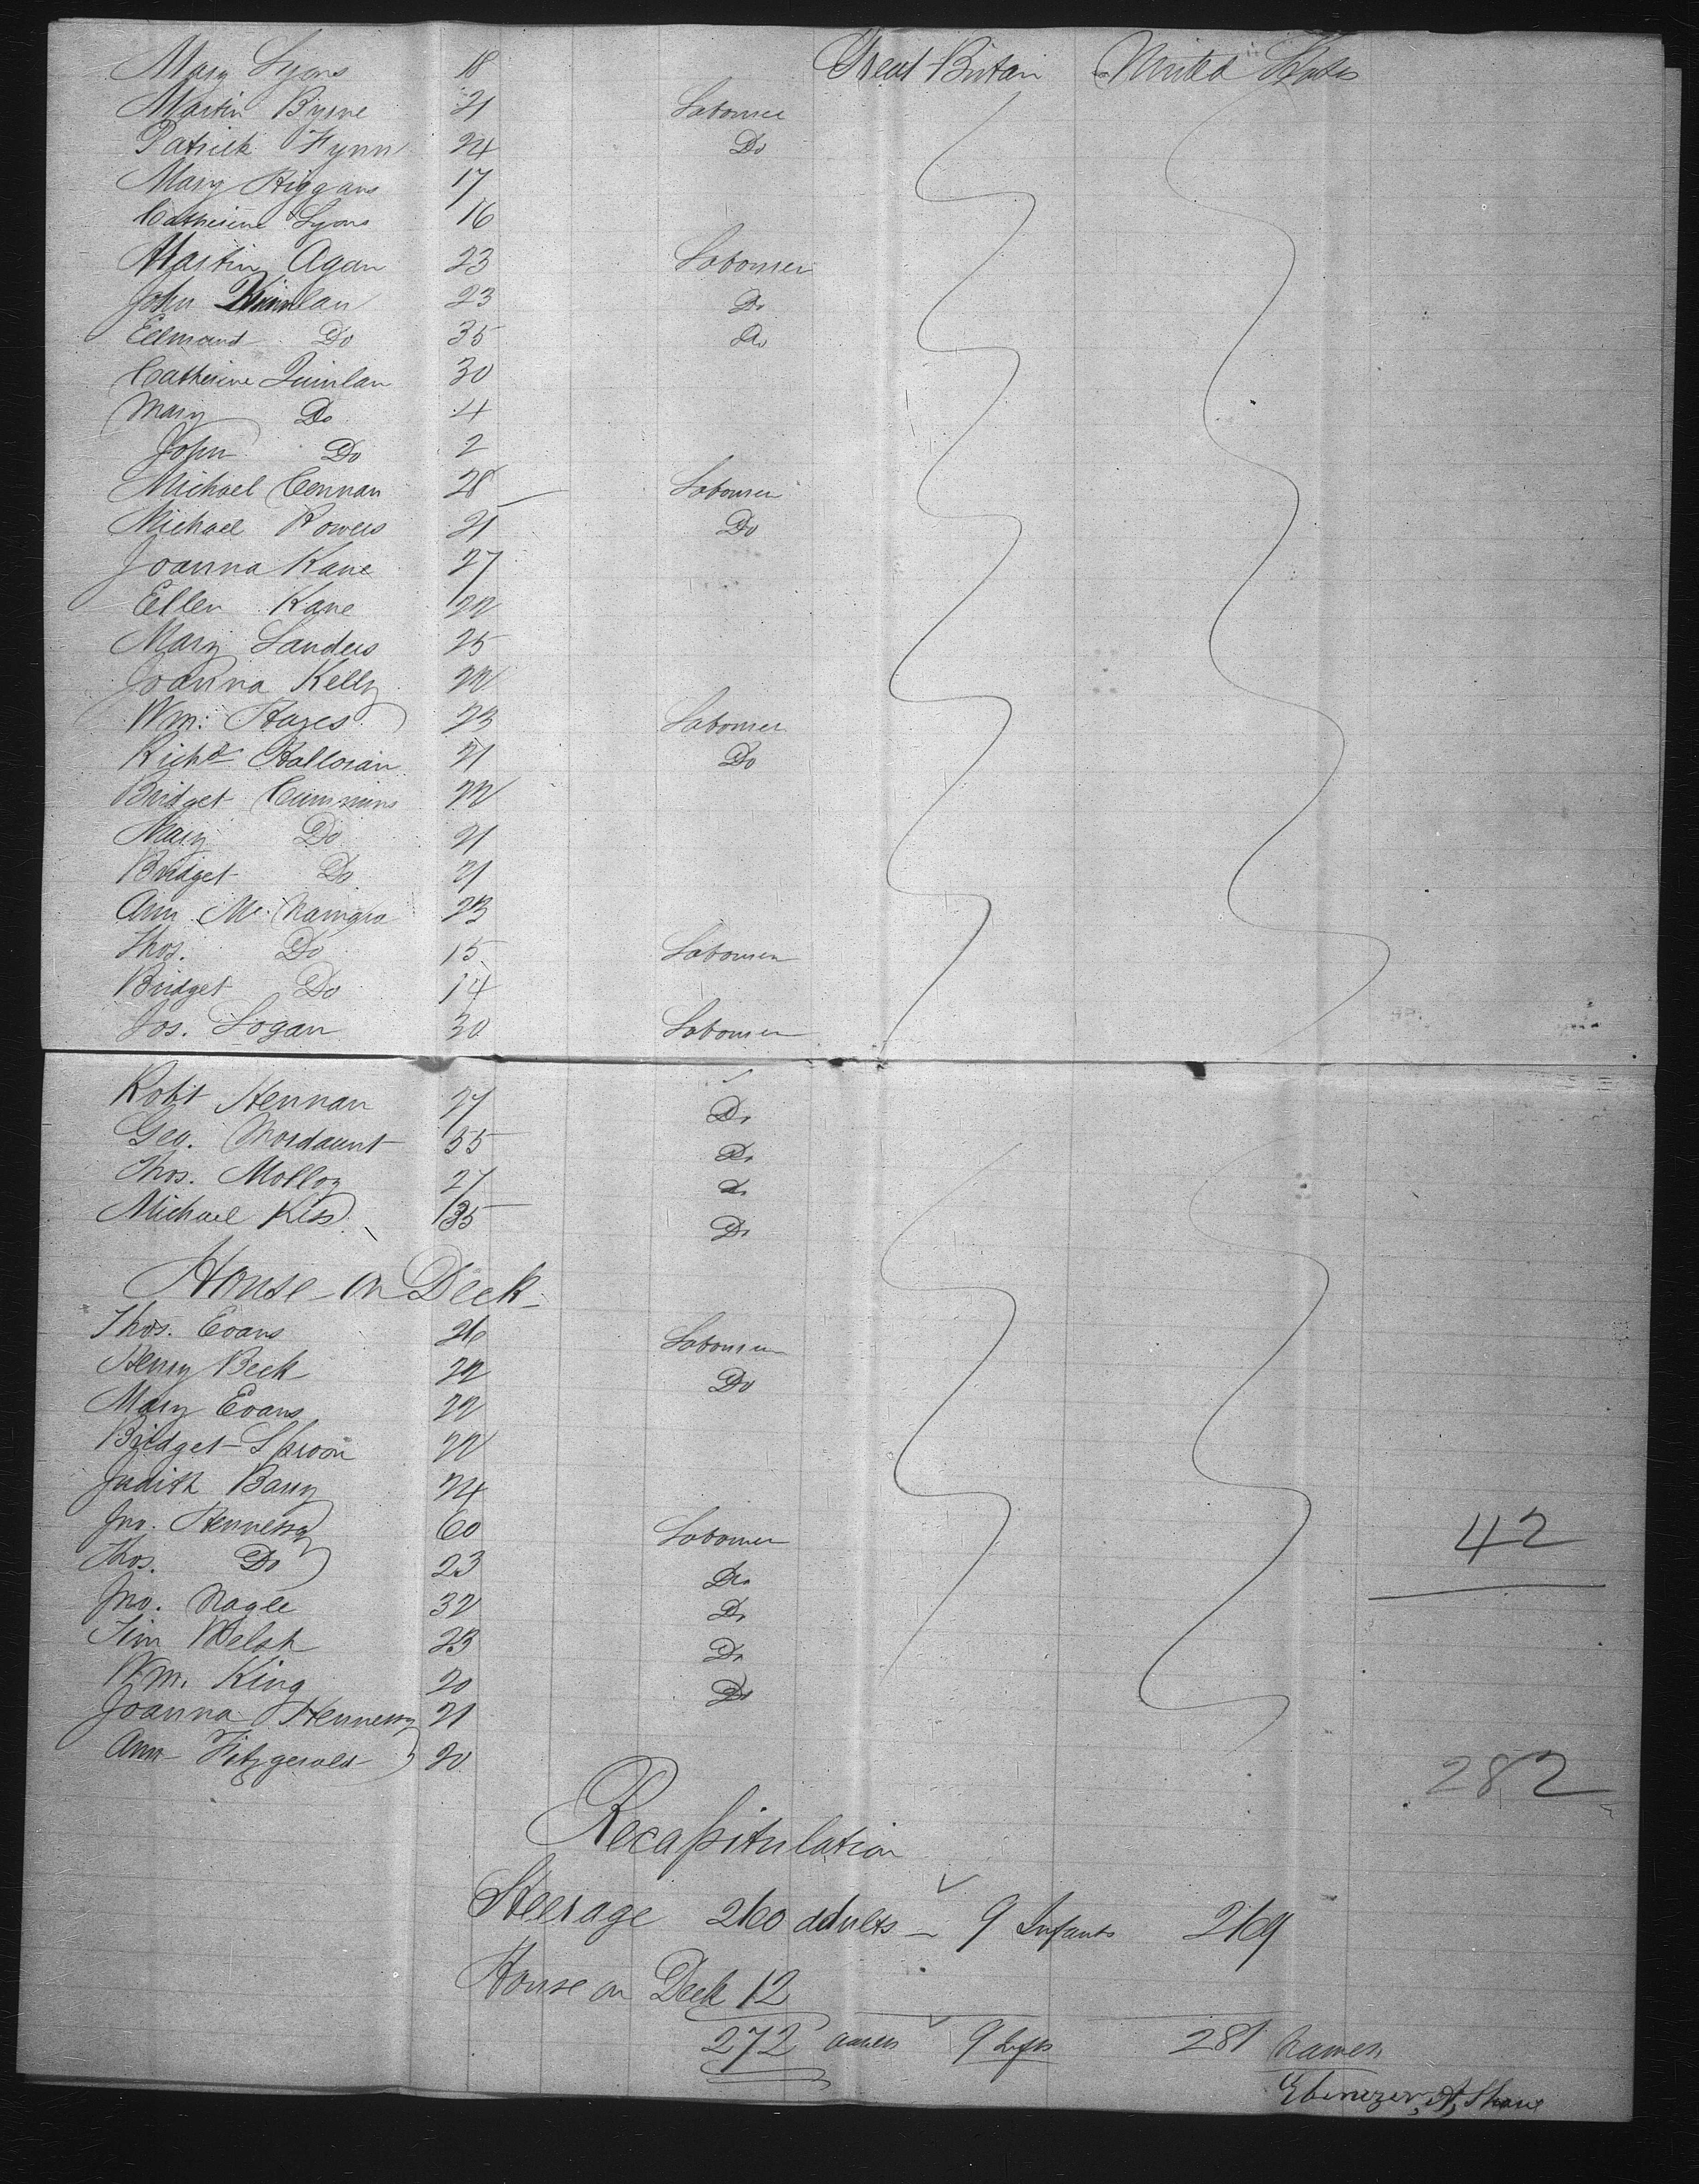 Mary Lyons 18 Great Britain United States
Martin Byrne 21 Labourer
Patrick Flynn 24 Do
Mary Higgans 17
Catherine Lyons 16
Martin Agan 23 Labourer
John Quinlan 23 Do
Edmund Do 35 Do
Catherine Quinlan 30
Mary Do 4
John Do 2
Michael Cennan 28 Labourer
Michael Powers 21 Do
Joanna Kane 27
Ellen Kane 22
Mary Landers 25
Joanna Kelly 22
Wm: Hayes 23 Labourer
Richd Halloran 21 Do
Bridget Cummins 22
Mary Do 21
Bridget Do 21
Ann Mc.Namara 23
Thos. Do 15 Labourer
Bridget Do 14
Jos. Logan 30 Labourer
Robt Hennan 27 Do
Geo. Mordaunt 35 Do
Thos. Molloy 27 do
Michael 35 Do
House on Deck
Thos. Evans 26 Labourer
Henry Beck 22 Do
Mary Evans 22
Bridget Sproon 22
Judith Barry 24
Jno. Hennessy 60 Labourer
Thos. Do 23 Do
Jno. Nagle 32 Do
Tim Welsh 23 Do
Wm. King 20 Do
Joanna Hennessy 21
Ann Fitzgerald 20
42
282
Recapitulation
Steerage 260 adults 9 Infants 269
House on Deck 12
272 9 Infts 281 Names
Ebenezer A. Shaw